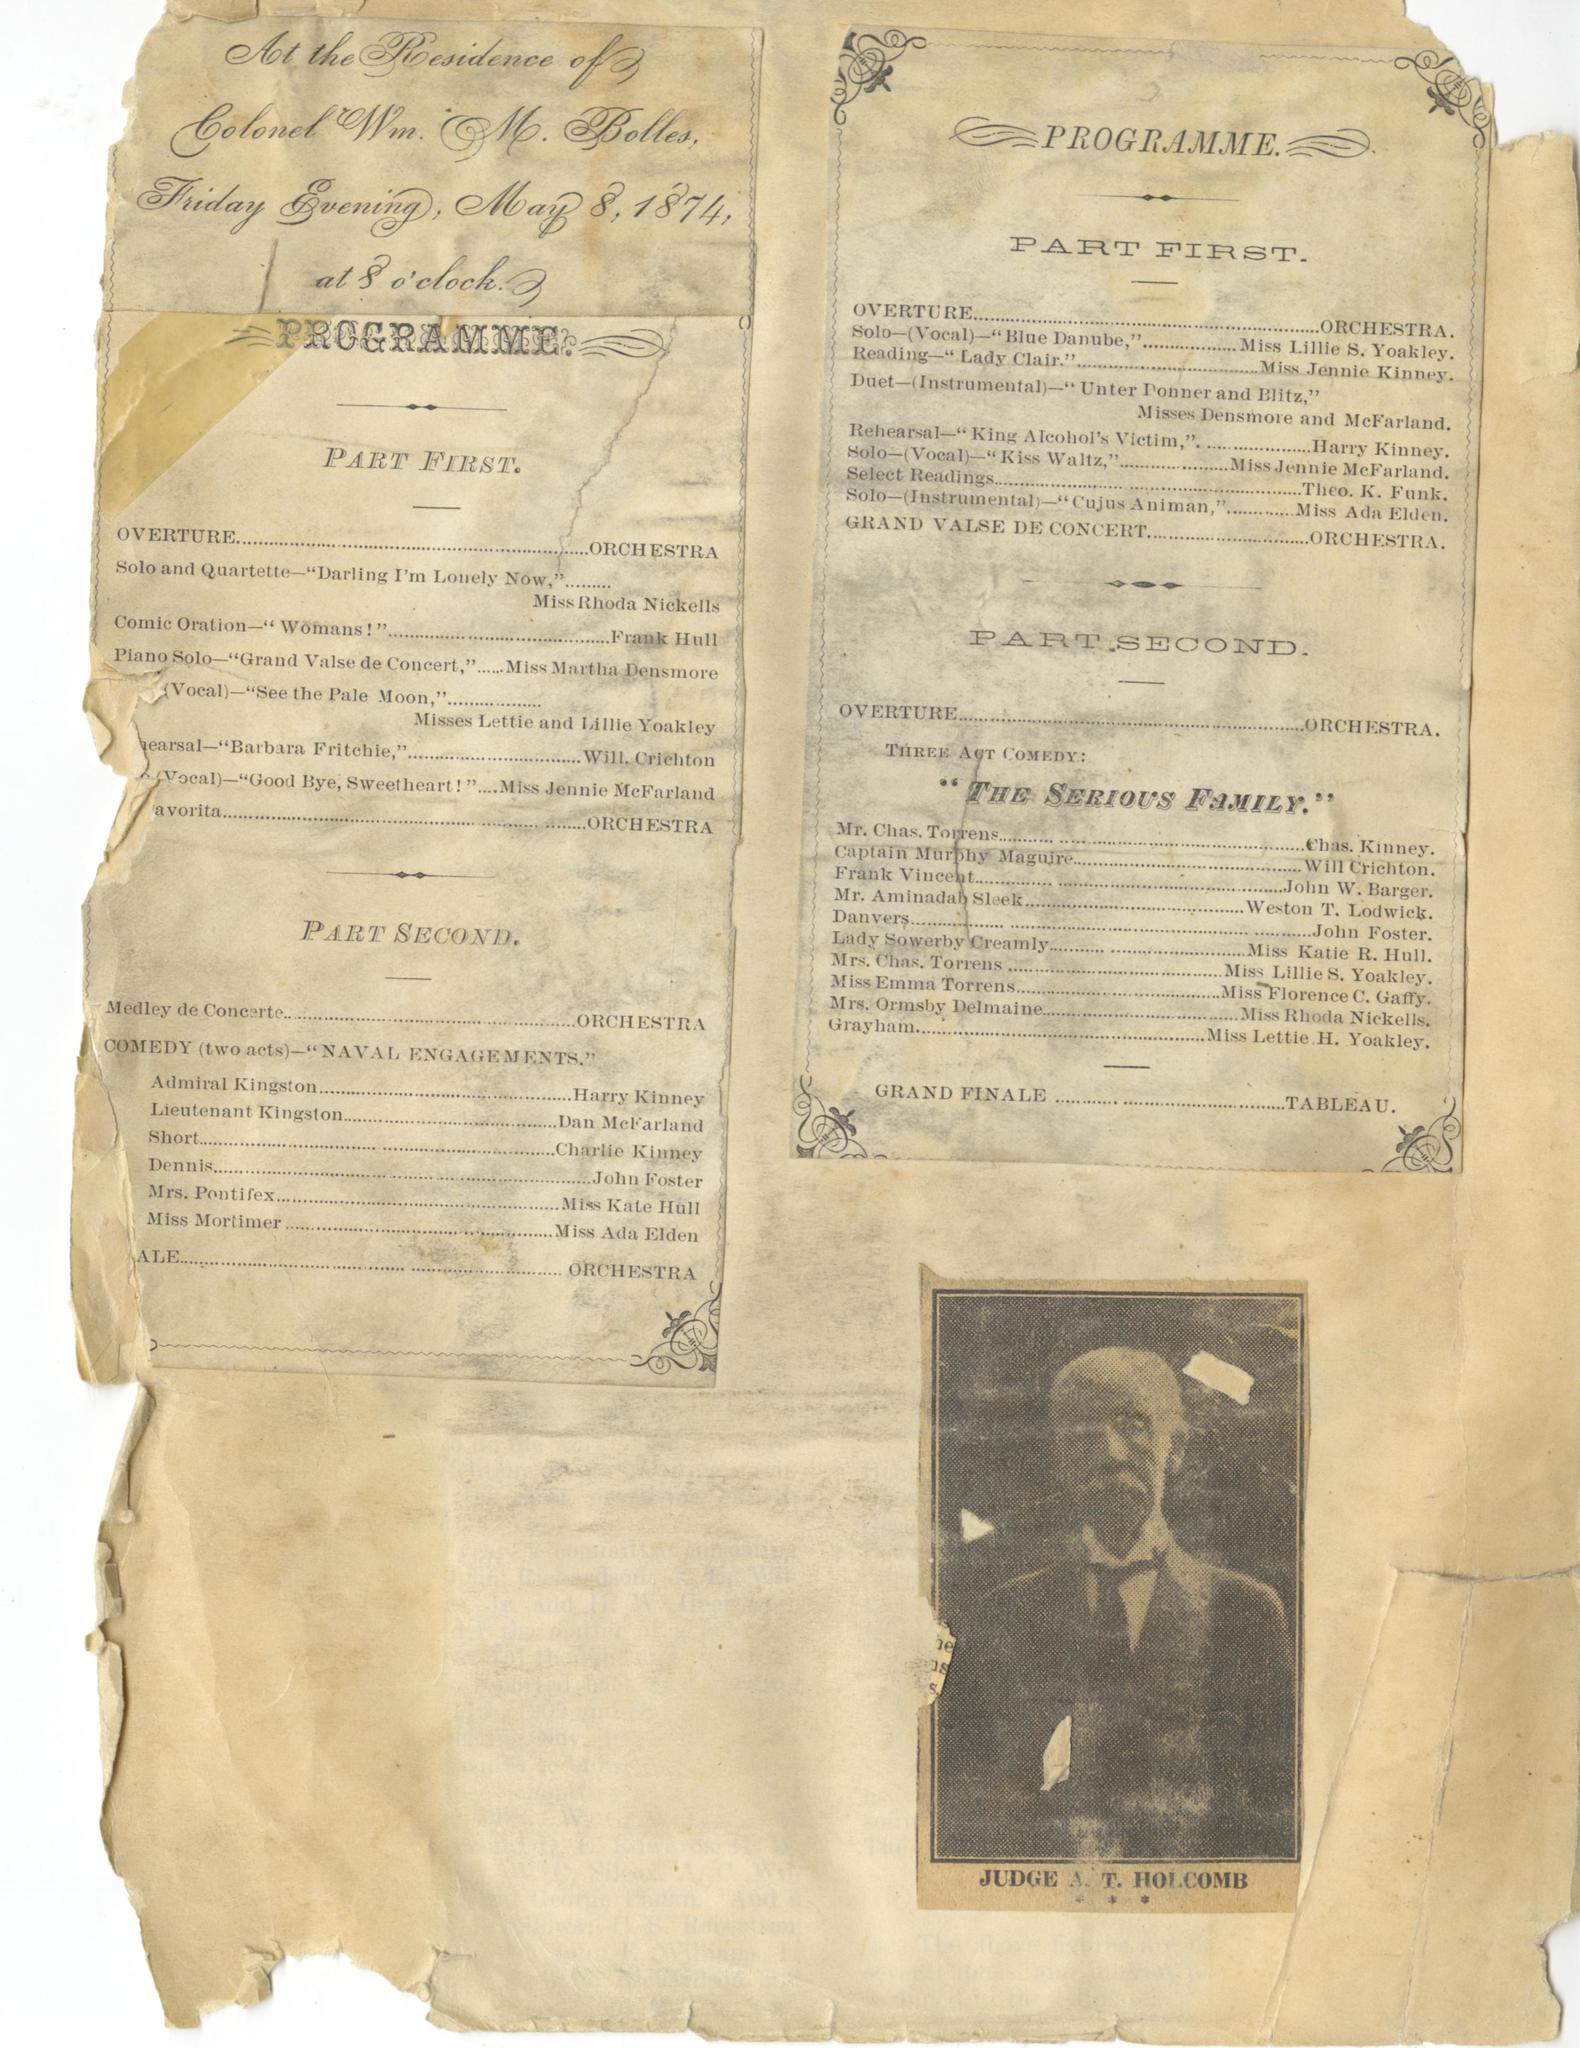 At the Residence of
Colonel Wm. M. Bolles,
Friday Evening, May 8, 1874,
at 8 o'clock.
PROGRAMME.
PART FIRST.
OVERTURE........ORCHESTRA
Solo and Quartette—“Darling I'm Lonely Now,”.........
Miss Rhoda Nickells
Comic Oration—“Womans!”........Frank Hull
Piano Solo—“Grand Valse de Concert,”......Miss Martha Densmore
(Vocal)—“See the Pale Moon,”..................
Misses Lettie and Lillie Yoakley
hearsal—“Barbara Fritchie,”........Will. Crichton
(Vocal)—“Good Bye, Sweetheart!”....Miss Jennie McFarland
avorita........ORCHESTRA
PART SECOND.
Medley de Concerte........ORCHESTRA
COMEDY (two acts)—“NAVAL ENGAGEMENTS.”
Admiral Kingston........Harry Kinney
Lieutenant Kingston........Dan McFarland
Short........Charlie Kinney
Dennis........John Foster
Mrs. Pontifex........Miss Kate Hull
Miss Mortimer........Miss Ada Elden
ALE........ORCHESTRA
PROGRAMME.
PART FIRST.
OVERTURE........ORCHESTRA.
Solo—(Vocal)—“Blue Danube,”........Miss Lillie S. Yoakley.
Reading—“Lady Clair.”........Miss Jennie Kinney.
Duet—(Instrumental)—“Unter Donner and Blitz,”
Misses Densmore and McFarland.
Rehearsal—“King Alcohol's Victim,”........Harry Kinney.
Solo—(Vocal)—“Kiss Waltz,”........Miss Jennie McFarland.
Select Readings........Theo. K. Funk.
Solo—(Instrumental)—“Cujus Animan,”........Miss Ada Elden.
GRAND VALSE DE CONCERT........ORCHESTRA.
PART SECOND.
OVERTURE........ORCHESTRA.
THREE ACT COMEDY:
“THE SERIOUS FAMILY.”
Mr. Chas. Torrens........Chas. Kinney.
Captain Murphy Maguire........Will Crichton.
Frank Vincent........John W. Barger.
Mr. Aminadab Sleek........Weston T. Lodwick.
Danvers........John Foster.
Lady Sowerby Creamly........Miss Katie R. Hull.
Mrs. Chas. Torrens........Miss Lillie S. Yoakley.
Miss Emma Torrens........Miss Florence C. Gaffy.
Mrs. Ormsby Delmaine........Miss Rhoda Nickells.
Grayham........Miss Lettie H. Yoakley.
GRAND FINALE........TABLEAU.
JUDGE A. T. HOLCOMB
* * *